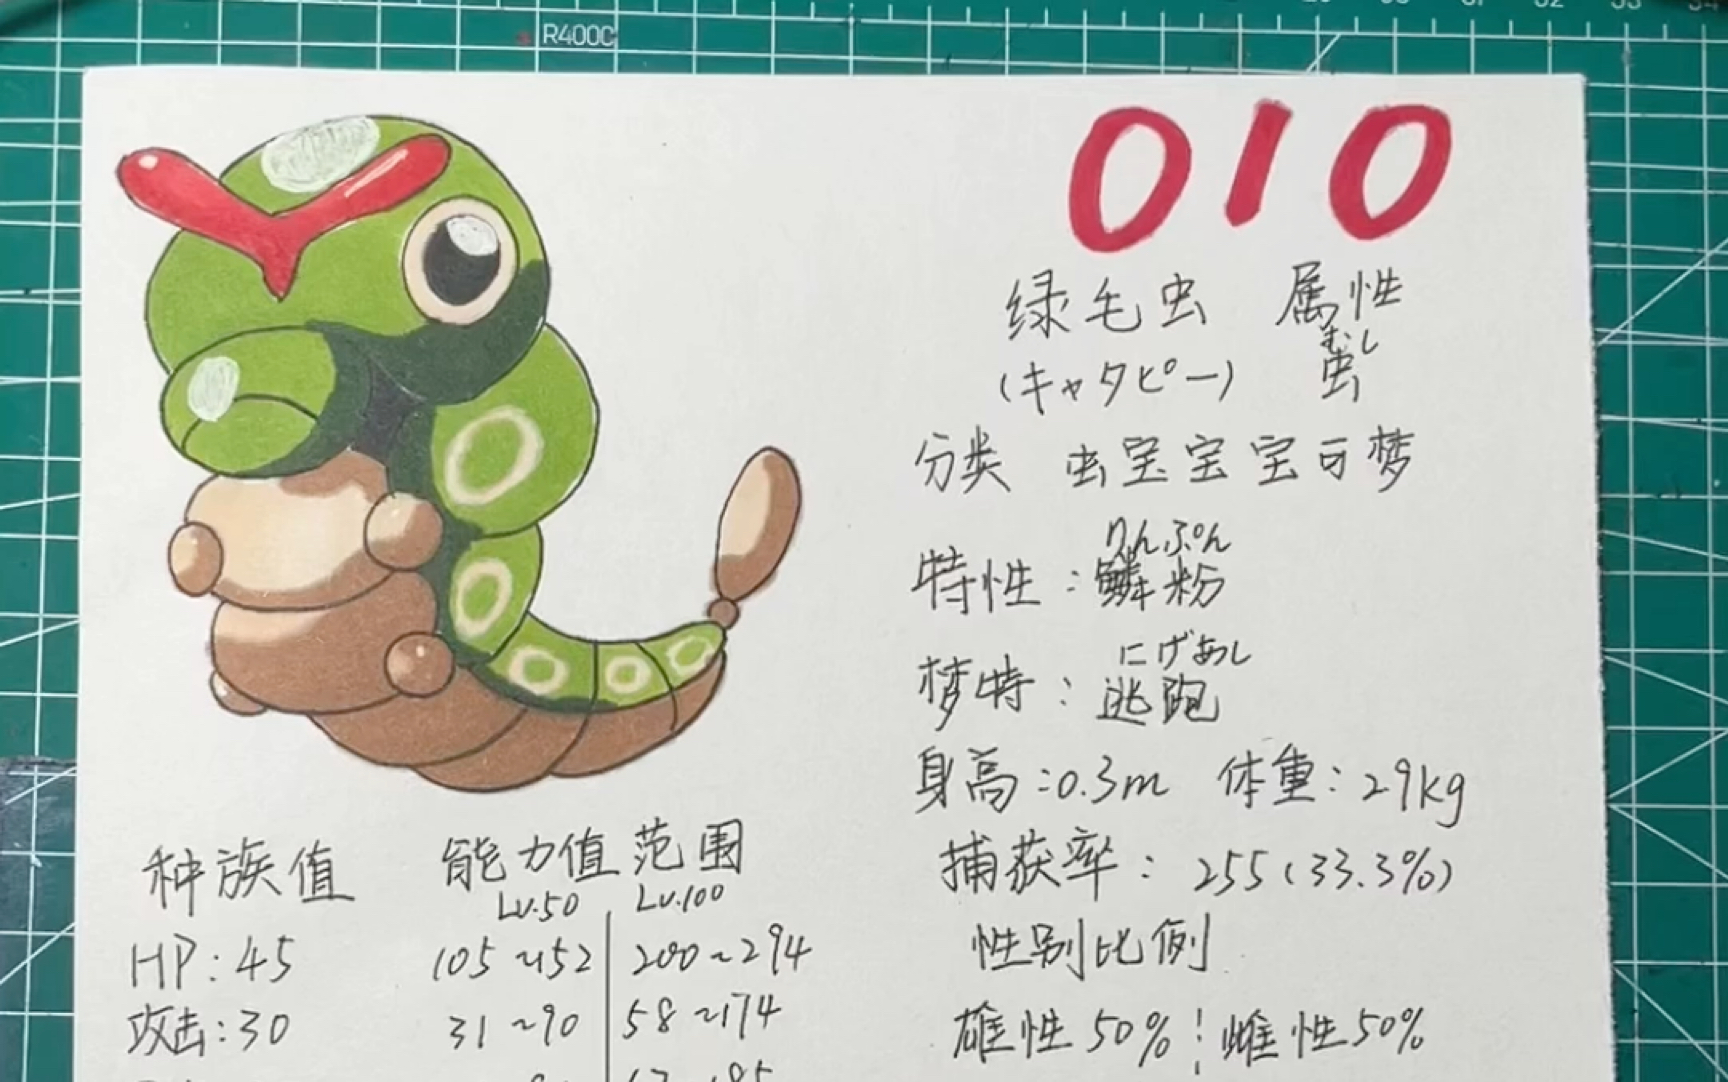 R400C
010
绿毛虫 属性
むし
(キャタピー) 虫
分类 虫宝宝宝可梦
りんぷん
特性:鳞粉
にげあし
梦特:逃跑
身高:0.3m 体重:29kg
捕获率:255(33.3%)
性别比例
雄性50% 雌性50%
种族值 能力值范围
Lv.50 Lv.100
HP:45 105~152 200~294
攻击:30 31~90 58~174